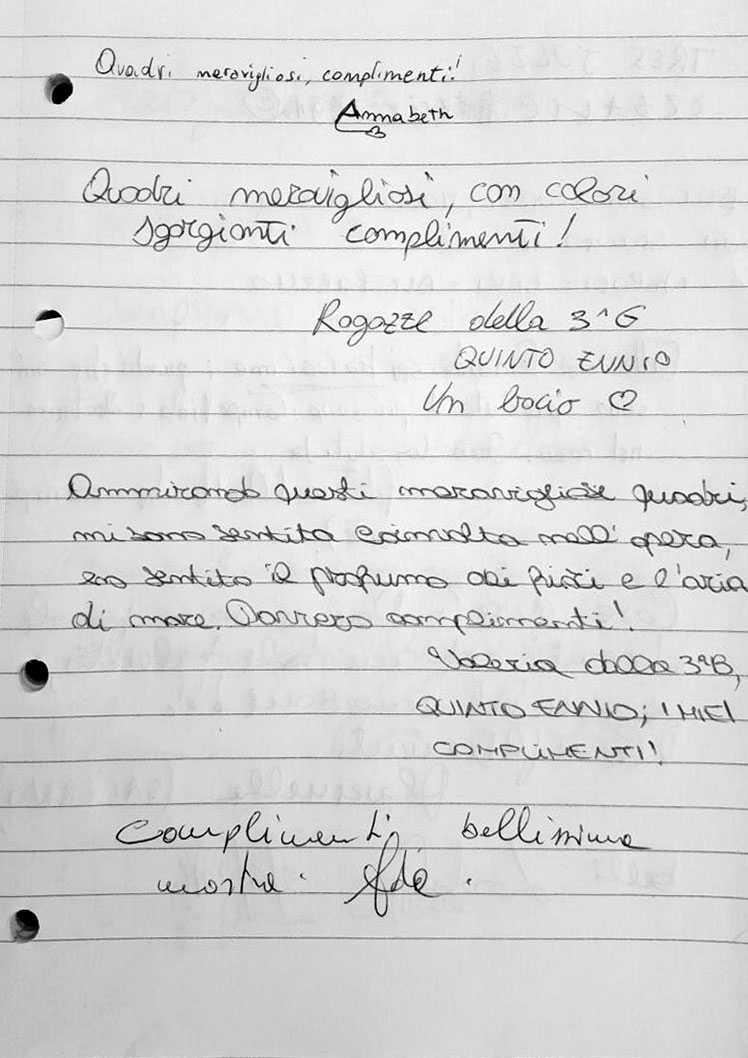 Quadri meravigliosi, complimenti!
Annabeth
Quadri meravigliosi, con colori
sgargianti complimenti!
Ragazze della 3^G
QUINTO ENNIO
Un bacio ♡
Ammirando questi meravigliosi quadri,
mi sono sentita coinvolta nell'opera,
ho sentito il profumo dei fiori e l'aria
di mare. Davvero complimenti!
Valeria della 3^B,
QUINTO ENNIO; I MIEI
COMPLIMENTI!
Complimenti bellissima
mostra.